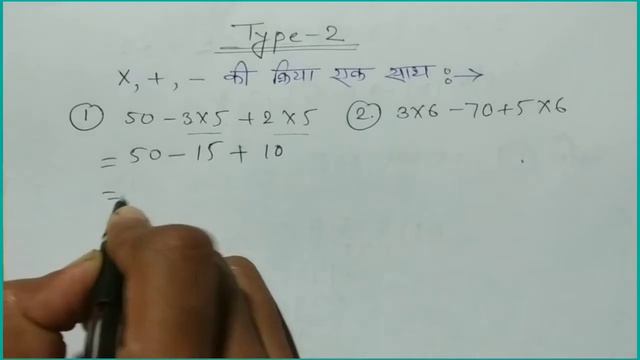 Type-2
×, +, - की क्रिया एक साथ :→
① 50 - 3×5 + 2×5 ②. 3×6 - 70 + 5×6
= 50 - 15 + 10
=